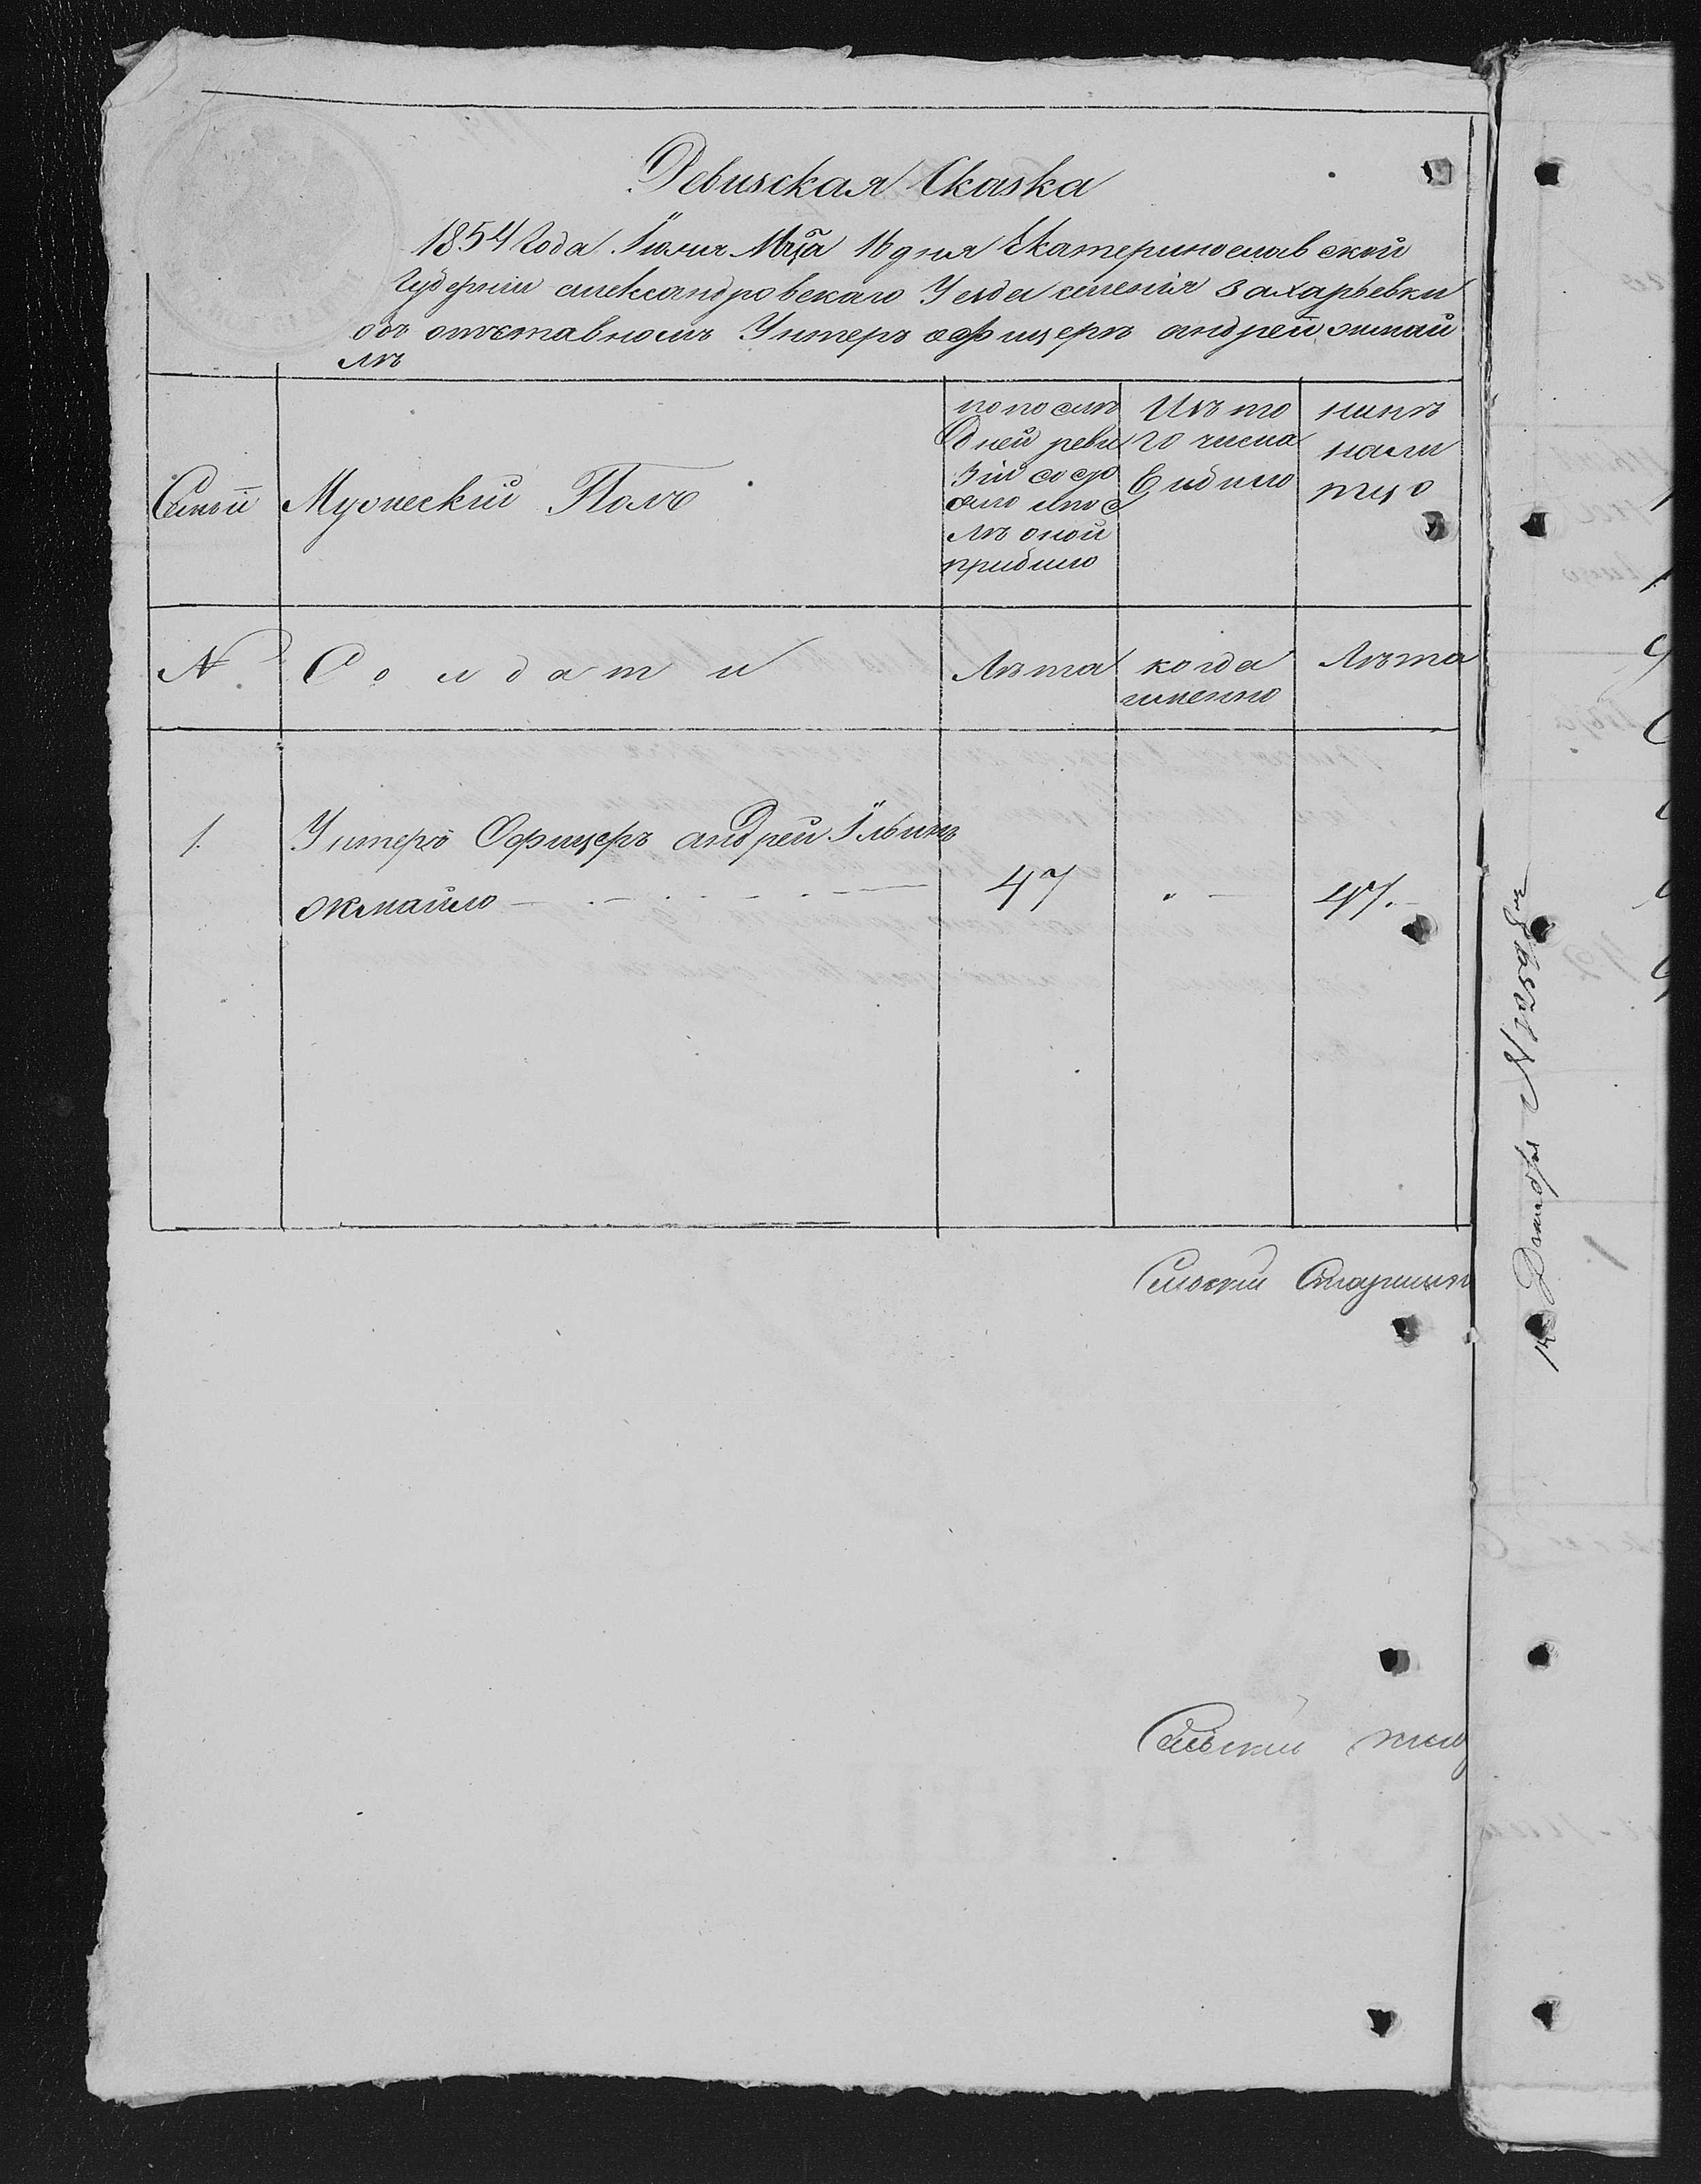 Ревизская Сказка
1854 Года Июня Мѣца 16 дня Екатеринославской
Губернiи александровскаго Уезда селенiя Захарьевки
объ отставномъ Унтеръ офицеръ андрей окмай
лѣ
Семьи
Мужескiй Полъ
по послѣ
дней реви
зiи состо
яло и пос
лѣ оной
прибило
Изъ то
го числа
вибило
нинѣ
нали
тцо
№
Солдати
Лѣта
когда
именно
Лѣта
1.
Унтеръ Офицеръ андрей Ильинъ
окмайло
47
47.
Сельскiй Старшин
Сельскiй